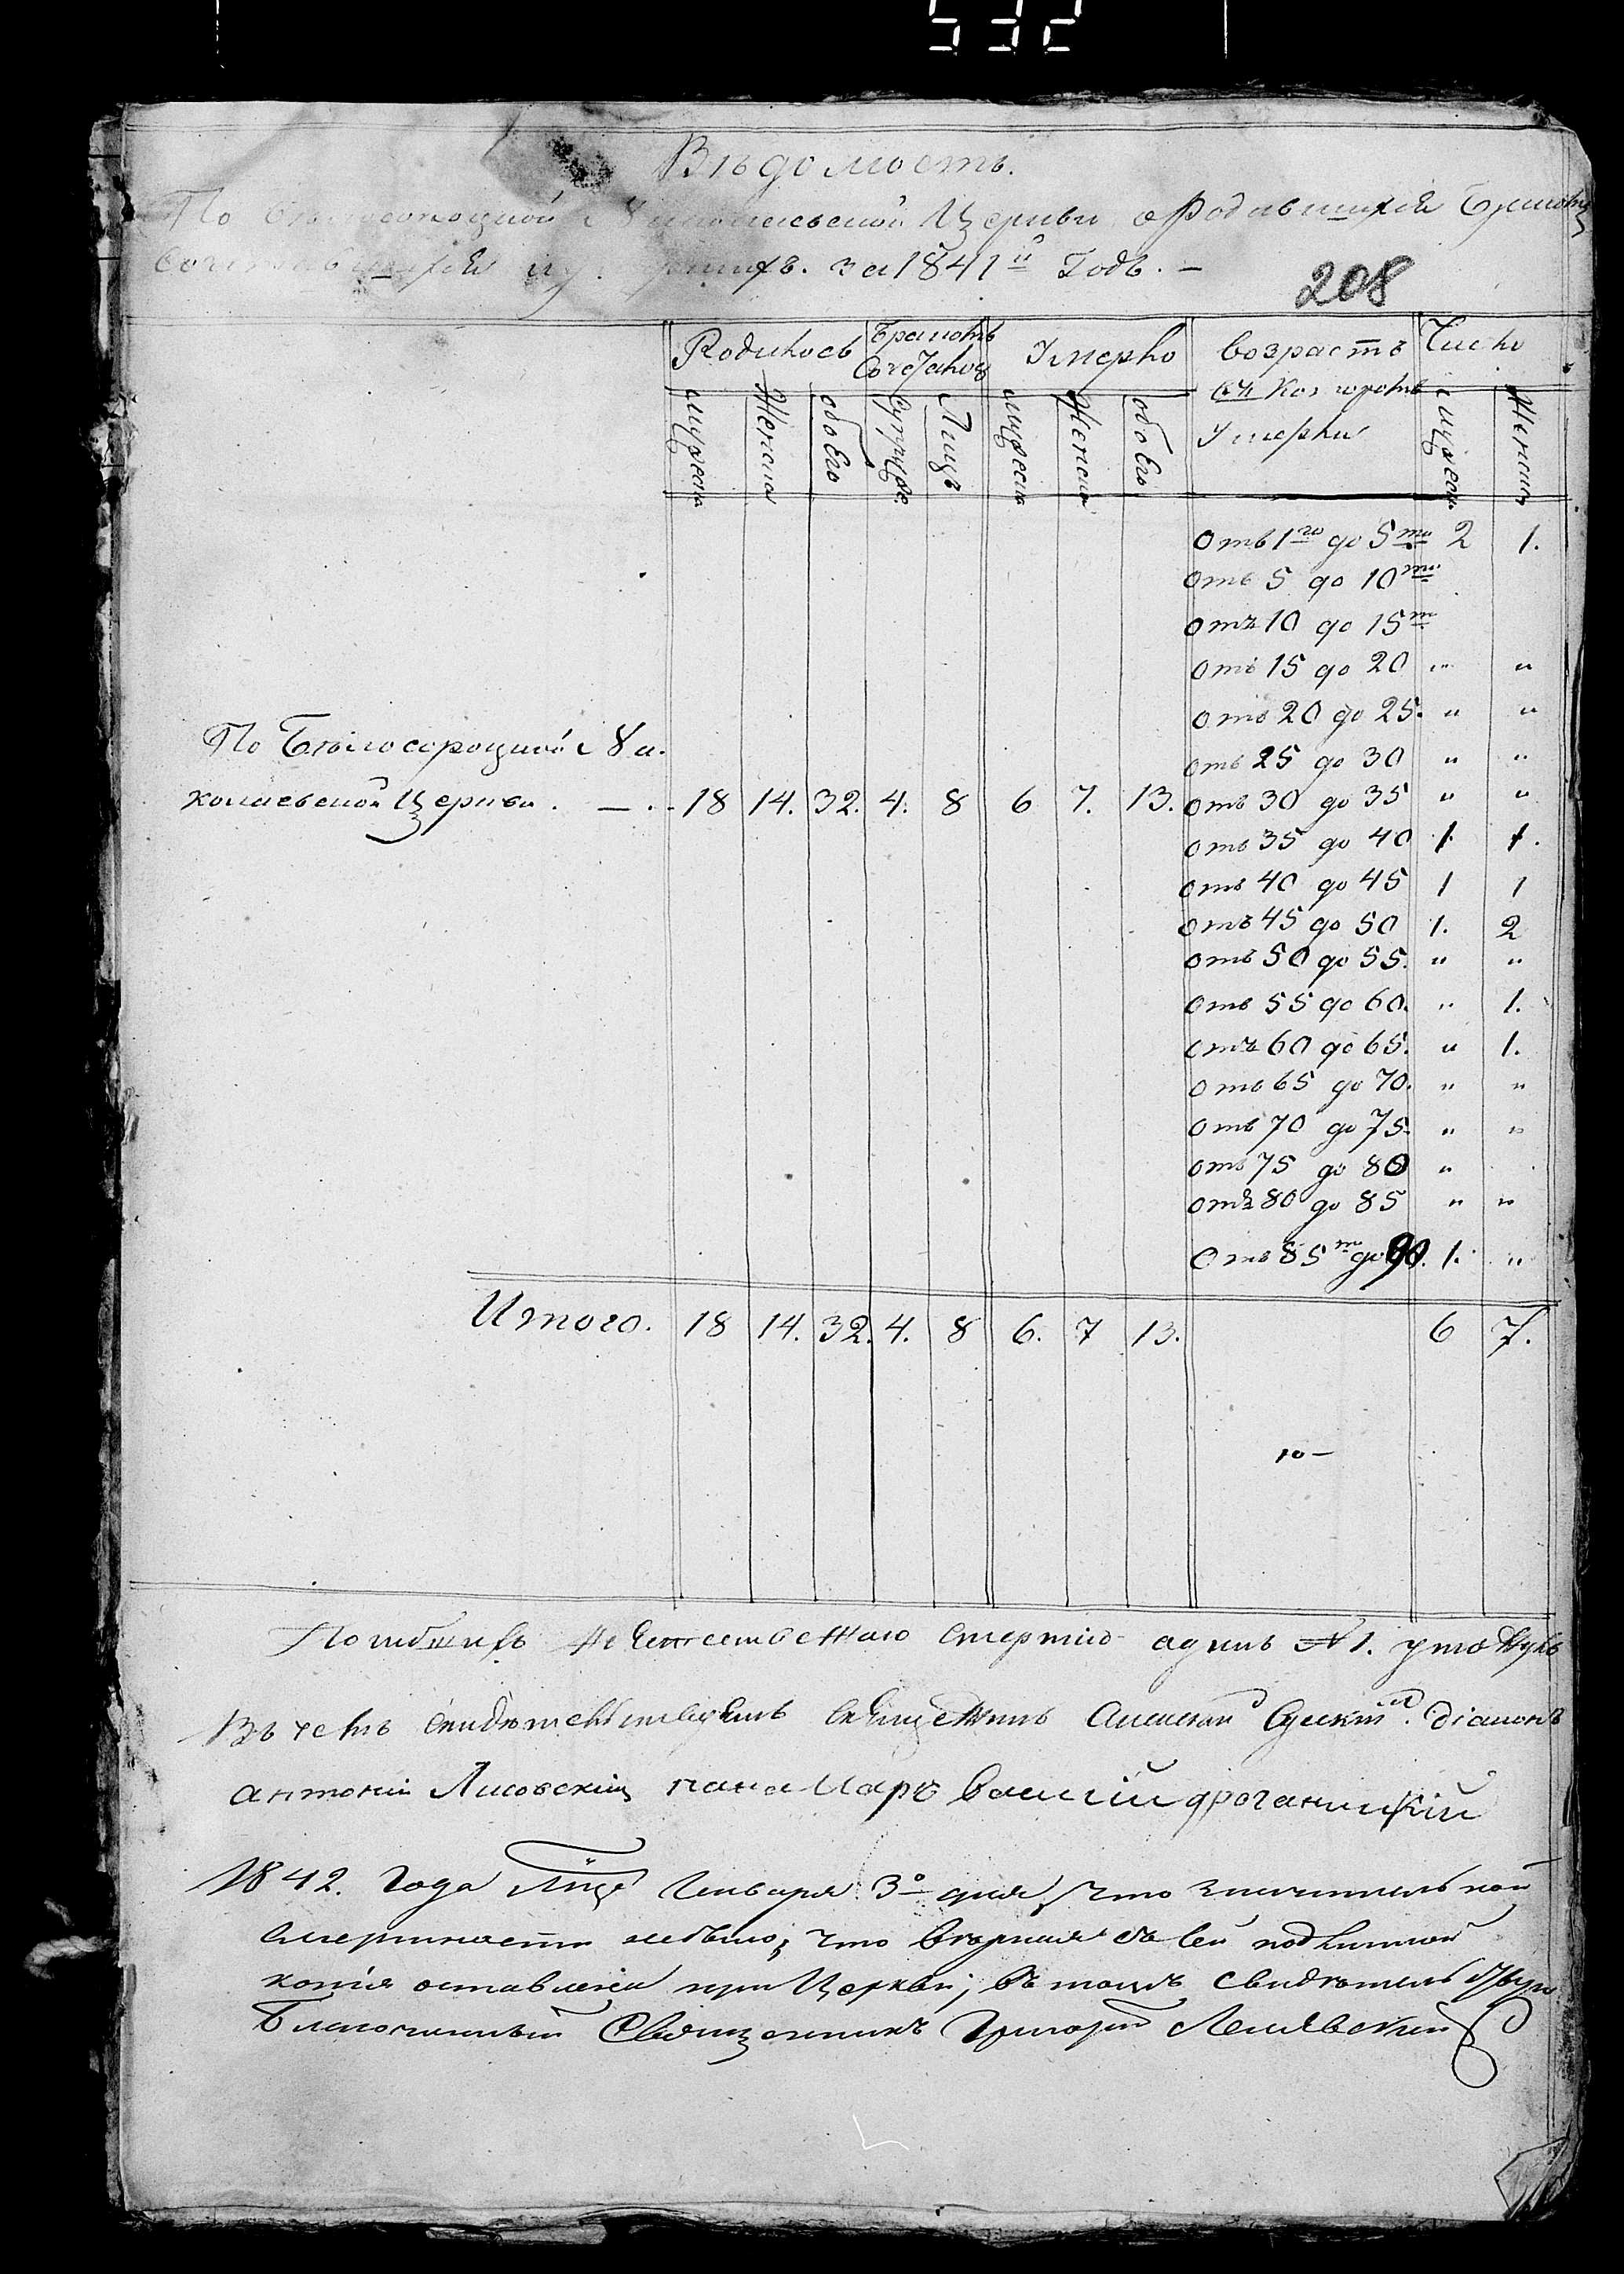 532
Вѣдомость.
По Николаевской Церкви о Родившихся Бракомъ
Сочетавшихся за 1841й Годъ. –
208
Родилось Бракомъ Сочеталось Умерло Возрастъ Число
въ коз Умерли
Мужеск Женска обоего Супруж. Лицъ Мужеск Женска обоего Мужеск Женска
Отъ 1го до 5ти 2 1.
Отъ 5 до 10ти
Отъ 10 до 15ти
Отъ 15 до 20 " "
Отъ 20 до 25. " "
По Бѣлосороцкой Ни-
Отъ 25 до 30 " "
колаевской Церкви. — . - 18 14. 32. 4. 8 6 7. 13. Отъ 30 до 35 " "
Отъ 35 до 40 1. 1.
Отъ 40 до 45 1 1
Отъ 45 до 50 1. 2
Отъ 50 до 55. " "
Отъ 55 до 60. " 1.
Отъ 60 до 65. " 1.
Отъ 65 до 70. " "
Отъ 70 до 75. " "
Отъ 75 до 80 "
Отъ 80 до 85 " "
Отъ 85ти до 90. 1. "
Итого. 18 14. 32. 4. 8 6. 7 13. 6 7.
смертію одинъ №1.
Въ чемъ Діаконъ
Антоній Лисовскій понамарь Василій
1842. Года Мца Генваря 3о дня, что значительной
смертности небыло; что вѣрная съ сей подлинной
копія оставлена при Церкви; въ томъ свидѣтельствую
Благочинный Священникъ Григорій